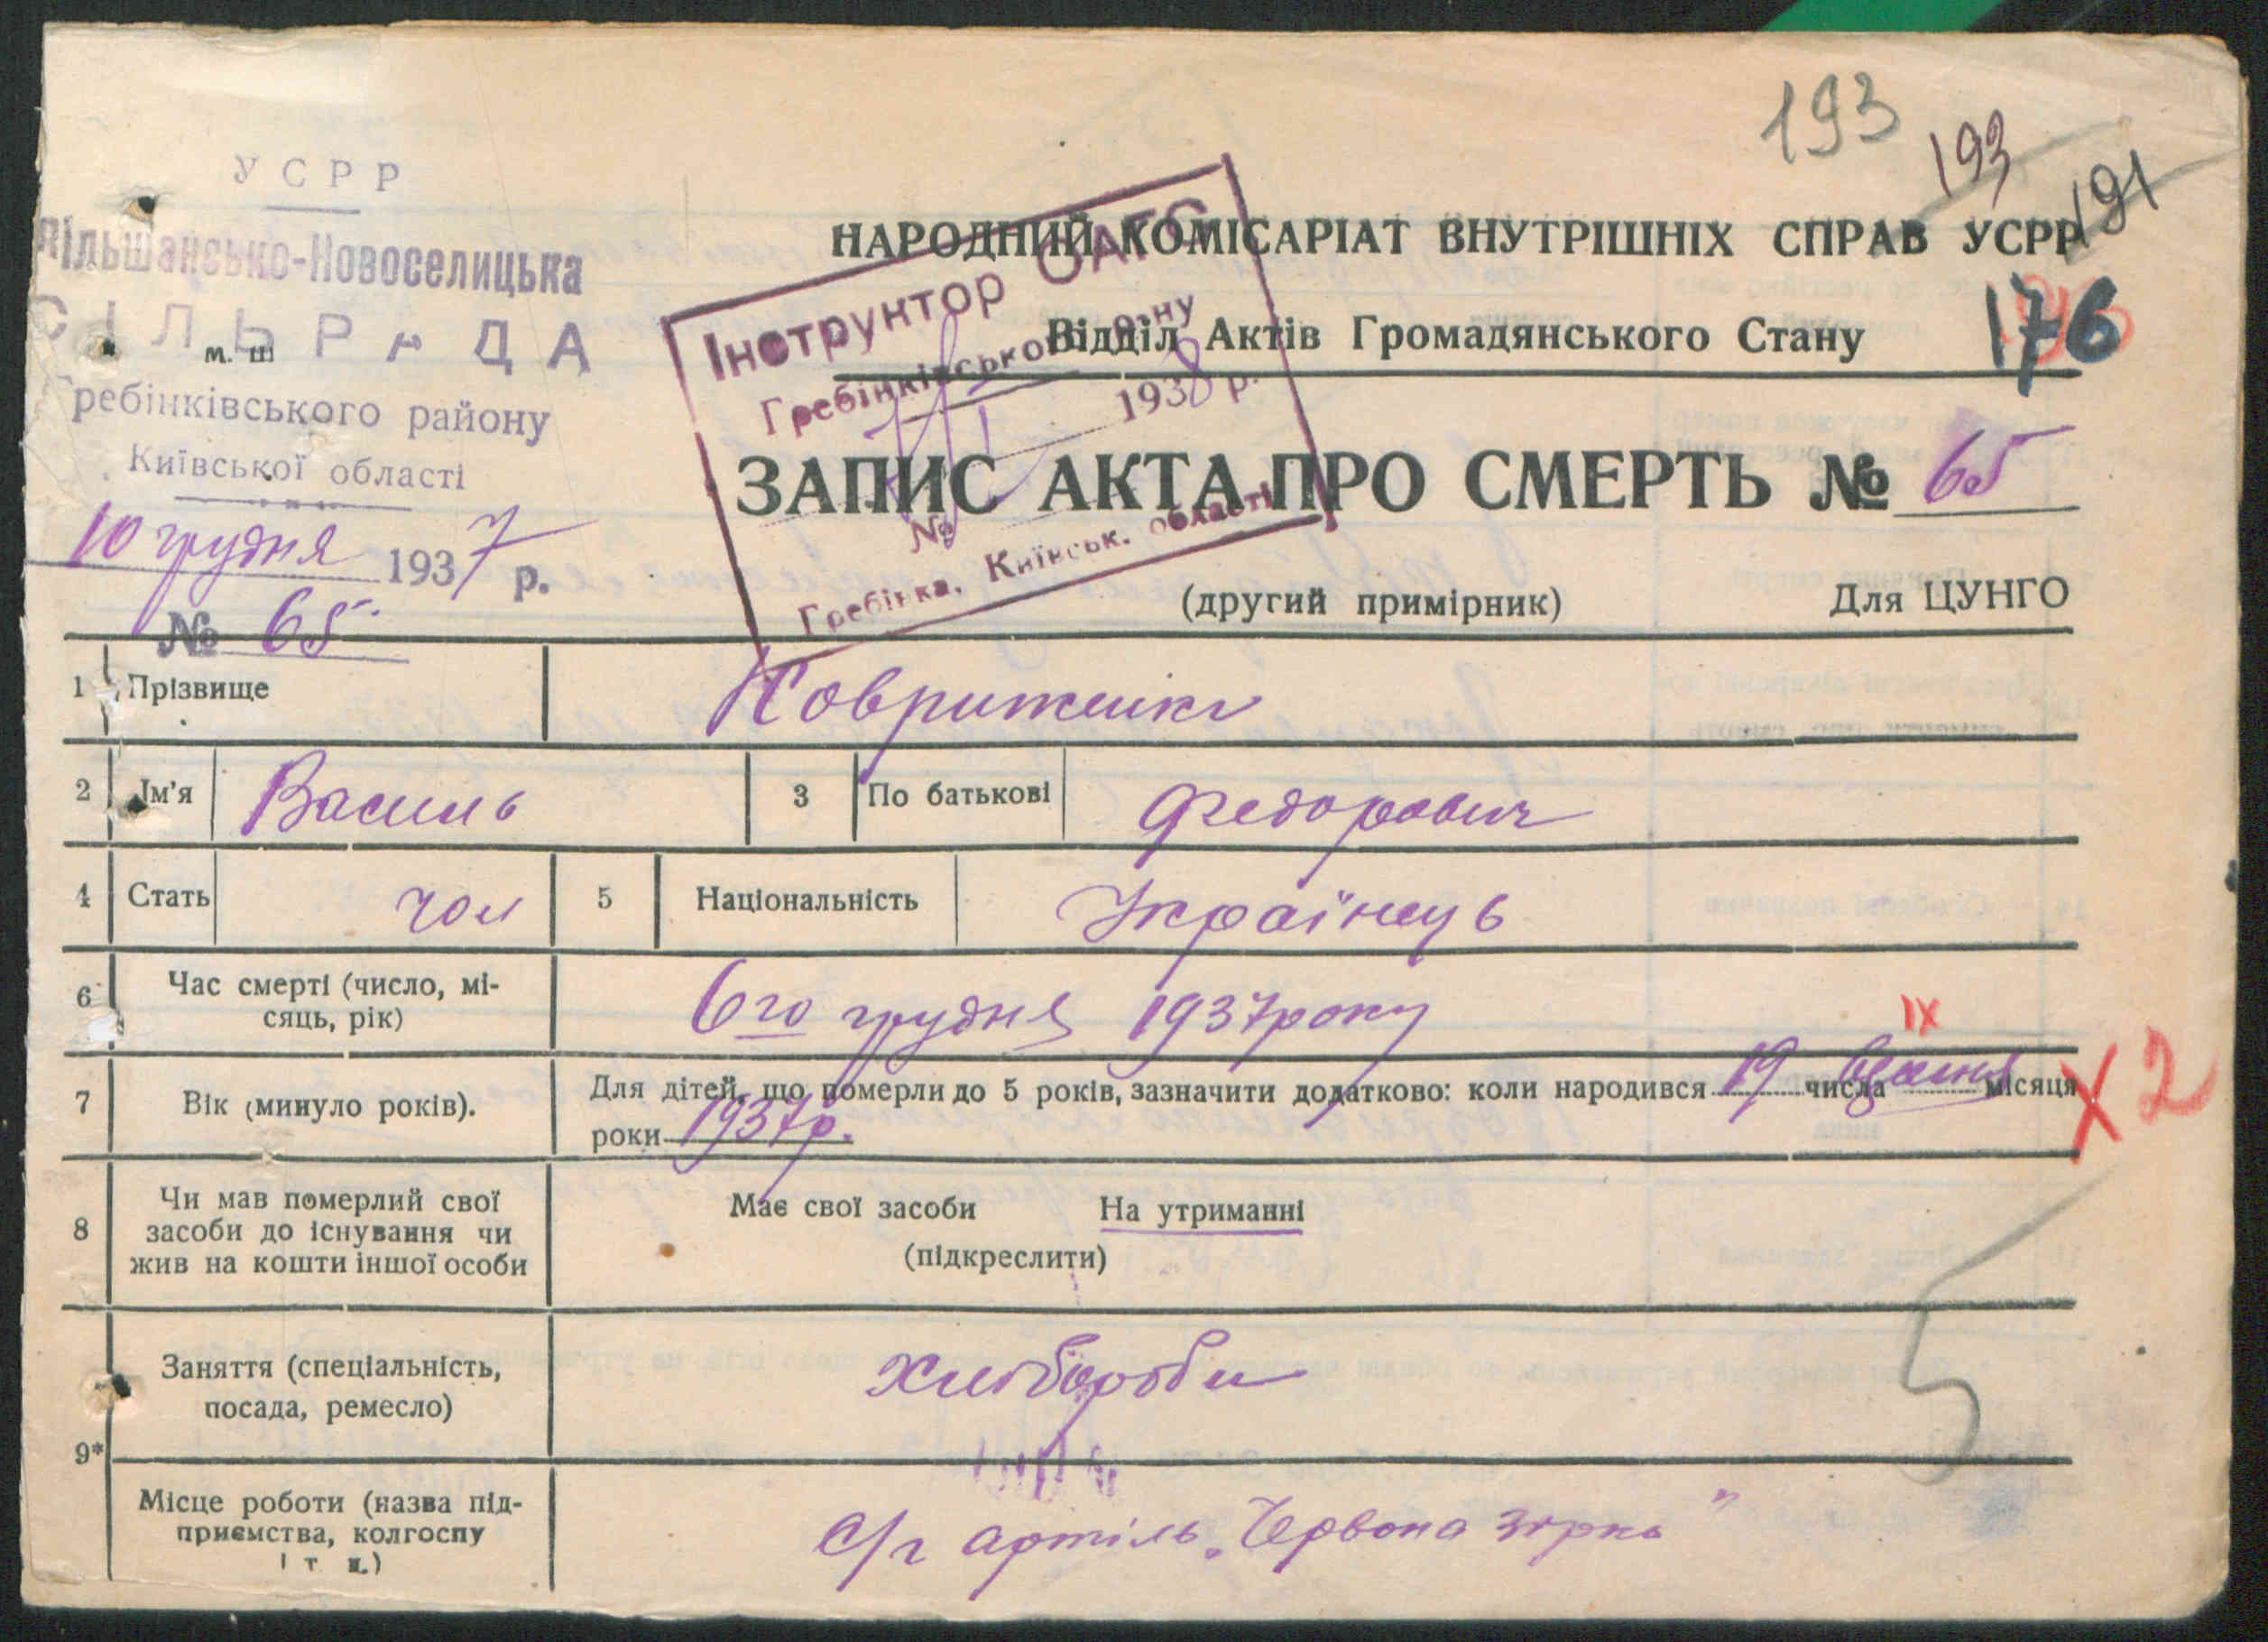 193
193
191
УСРР
Вільшансько-Новоселицька
СІЛЬРАДА
м. ш
Гребінківського району
Київської області
10 грудня 1937 р.
№ 65.
Інструктор ОАГС
Гребінківського р-ну
1938 р.
№
Гребінка, Київськ. області
НАРОДНИЙ КОМІСАРІАТ ВНУТРІШНІХ СПРАВ УСРР
Відділ Актів Громадянського Стану
176
ЗАПИС АКТА ПРО СМЕРТЬ № 65
(другий примірник) Для ЦУНГО
1 Прізвище Коврижшка
2 Ім'я Василь 3 По батькові Федорович
4 Стать чол 5 Національність Українець
6 Час смерті (число, мі-
сяць, рік) 6го грудня 1937 року
IX
7 Вік (минуло років). Для дітей, що померли до 5 років, зазначити додатково: коли народився 19 числа місяця
роки 1937р.
X 2
8 Чи мав померлий свої
засоби до існування чи
жив на кошти іншої особи
Має свої засоби На утриманні
(підкреслити)
5
9* Заняття (спеціальність,
посада, ремесло) Хлібороби
Місце роботи (назва під-
приємства, колгоспу
і т. п.) с/г артіль „Червона зірка"